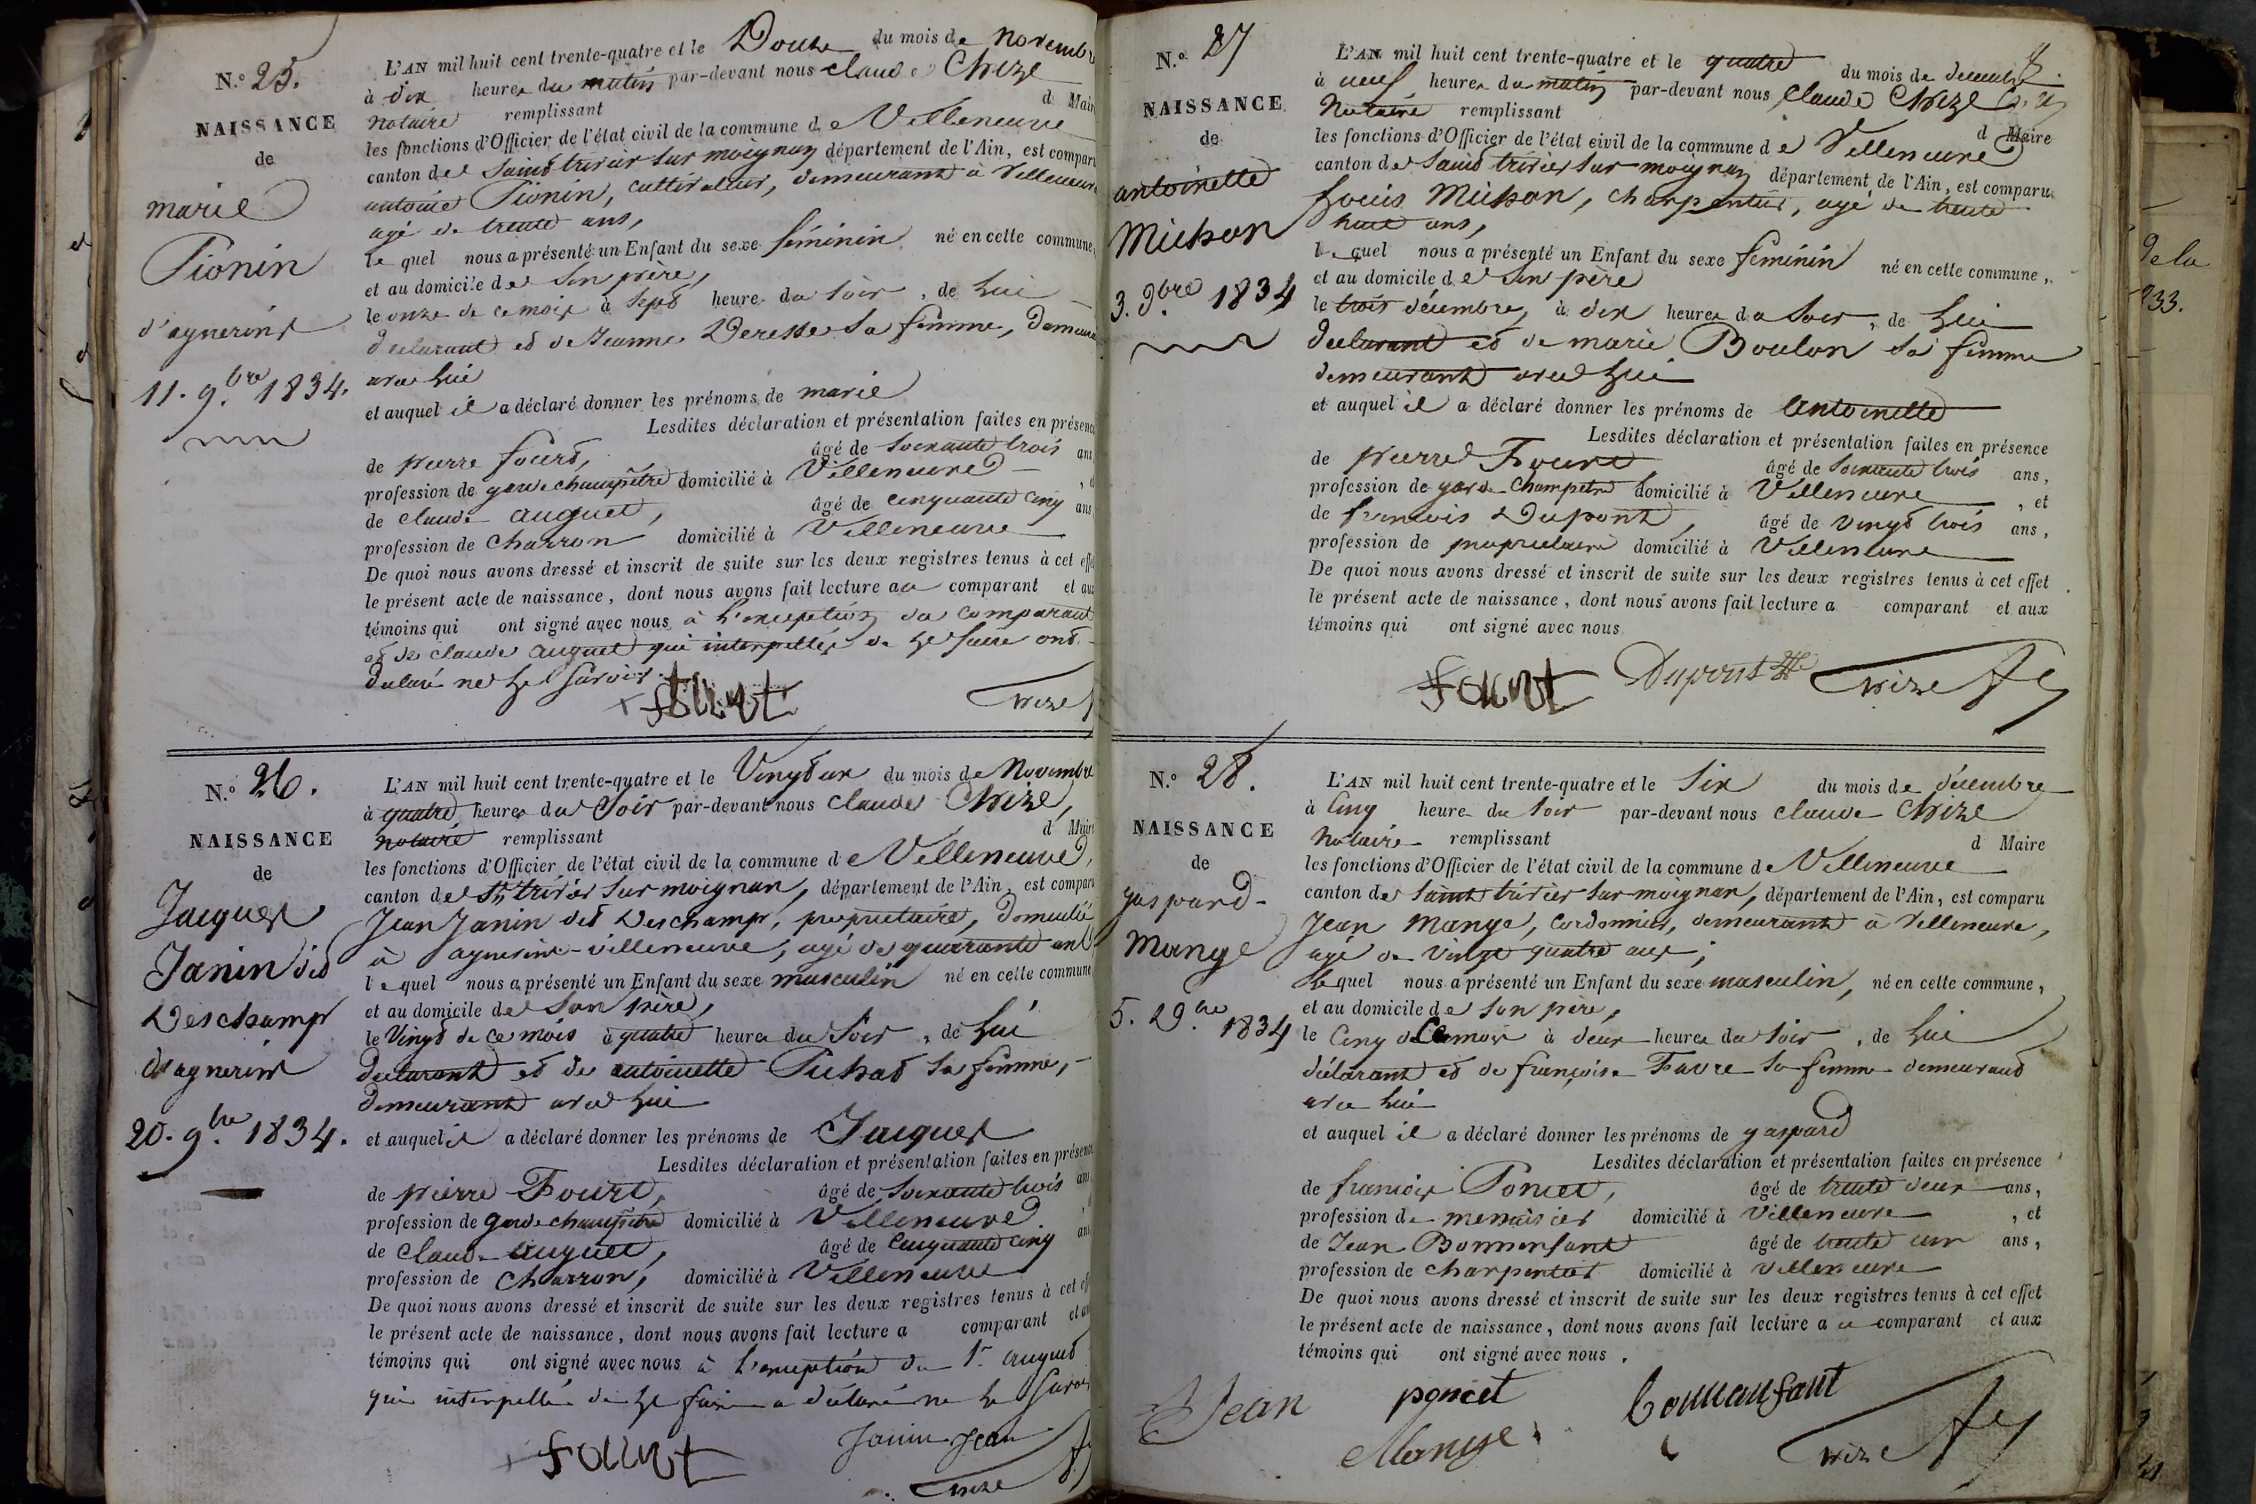 N.o 25.
NAISSANCE
de
marie
Pionin
d'agnerins
11. 9.bre 1834.
L'AN mil huit cent trente-quatre et le Douze du mois de novembre
à dix heures du matin par-devant nous claude Chize
notaire remplissant d Maire
les fonctions d'Officier de l'état civil de la commune de Villeneuve
canton de Saint trivier sur moignan département de l'Ain, est comparu
antoine Pionin, cultivateur, demeurant à Villeneuve
agé de trente ans,
le quel nous a présenté un Enfant du sexe féminin né en cette commune,
et au domicile de son père,
le onze de ce mois à sept heures du soir, de lui
déclarant et de Jeanne Deresse sa femme, demeurant
avec lui
et auquel il a déclaré donner les prénoms de marie
Lesdites déclaration et présentation faites en présence
de pierre fourt, âgé de soixante trois ans,
profession de garde champêtre domicilié à Villeneuve
de claude auguet, âgé de cinquante cinq ans
profession de charron domicilié à Villeneuve
De quoi nous avons dressé et inscrit de suite sur les deux registres tenus à cet effet
le présent acte de naissance, dont nous avons fait lecture au comparant et aux
témoins qui ont signé avec nous à l'exception du comparant
et de claude auguet qui interpellés de le faire ont
déclaré ne le savoir.
fourt Chize
N.o 26.
NAISSANCE
de
Jacques
Janin dit
Deschamp
d'agnerins
20. 9.bre 1834.
L'AN mil huit cent trente-quatre et le Vingt deux du mois de Novembre
à quatre heures du soir par-devant nous claude Chize,
notaire remplissant d Maire
les fonctions d'Officier de l'état civil de la commune de Villeneuve,
canton de St. trivier sur moignan, département de l'Ain, est comparu
Jean Janin dit Deschamps, propriétaire, domicilié
à agnerins-villeneuve, agé de quarante ans
le quel nous a présenté un Enfant du sexe masculin né en cette commune
et au domicile de son père,
le Vingt de ce mois à quatre heures du soir, de lui
déclarant et de antoinette Pichat sa femme,
demeurant avec lui
et auquel il a déclaré donner les prénoms de Jacques
Lesdites déclaration et présentation faites en présence
de pierre Fourt, âgé de soixante trois ans
profession de garde champêtre domicilié à Villeneuve.
de claude auguet, âgé de cinquante cinq ans
profession de charron, domicilié à Villeneuve
De quoi nous avons dressé et inscrit de suite sur les deux registres tenus à cet effet
le présent acte de naissance, dont nous avons fait lecture a comparant et aux
témoins qui ont signé avec nous à l'exception du Sr. auguet
qui interpellé de le faire a déclaré ne le savoir
fourt Janin Jean
Chize
N.o 27
NAISSANCE
de
antoinette
Michon
3. Xbre 1834
L'AN mil huit cent trente-quatre et le quatre du mois de décembre
à neuf heures du matin par-devant nous Claude Chize
Notaire remplissant d Maire
les fonctions d'Officier de l'état civil de la commune de Villeneuve
canton de Saint trivier sur moignan département de l'Ain, est comparu
Louis Michon, charpentier, agé de trente
huit ans,
le quel nous a présenté un Enfant du sexe féminin né en cette commune,
et au domicile de son père
le trois décembre, à dix heures du soir, de lui
déclarant et de marie Boulon sa femme
demeurant avec lui
et auquel il a déclaré donner les prénoms de antoinette
Lesdites déclaration et présentation faites en présence
de pierre Fourt, âgé de soixante trois ans,
profession de garde champêtre domicilié à Villeneuve, et
de francois Dupont, âgé de vingt trois ans,
profession de propriétaire domicilié à Villeneuve
De quoi nous avons dressé et inscrit de suite sur les deux registres tenus à cet effet
le présent acte de naissance, dont nous avons fait lecture a comparant et aux
témoins qui ont signé avec nous
fourt Dupont Chize
N.o 28.
NAISSANCE
de
gaspard
Mange
5. Xbre 1834
L'AN mil huit cent trente-quatre et le Six du mois de décembre
à Cinq heures du soir par-devant nous claude Chize
Notaire remplissant d Maire
les fonctions d'Officier de l'état civil de la commune de Villeneuve
canton de Saint trivier sur moignan, département de l'Ain, est comparu
Jean Mange, cordonnier, demeurant à Villeneuve,
agé de vingt quatre ans,
le quel nous a présenté un Enfant du sexe masculin, né en cette commune,
et au domicile de son père,
le Cinq de ce mois à deux heures du soir, de lui
déclarant et de françoise Favre sa femme demeurant
avec lui
et auquel il a déclaré donner les prénoms de gaspard
Lesdites déclaration et présentation faites en présence
de francois Poncet, âgé de trente deux ans,
profession de menuisier domicilié à Villeneuve, et
de Jean Bonnenfant âgé de trente un ans,
profession de charpentier domicilié à Villeneuve
De quoi nous avons dressé et inscrit de suite sur les deux registres tenus à cet effet
le présent acte de naissance, dont nous avons fait lecture au comparant et aux
témoins qui ont signé avec nous.
Jean poncet bonnanfant
Mange Chize
de la